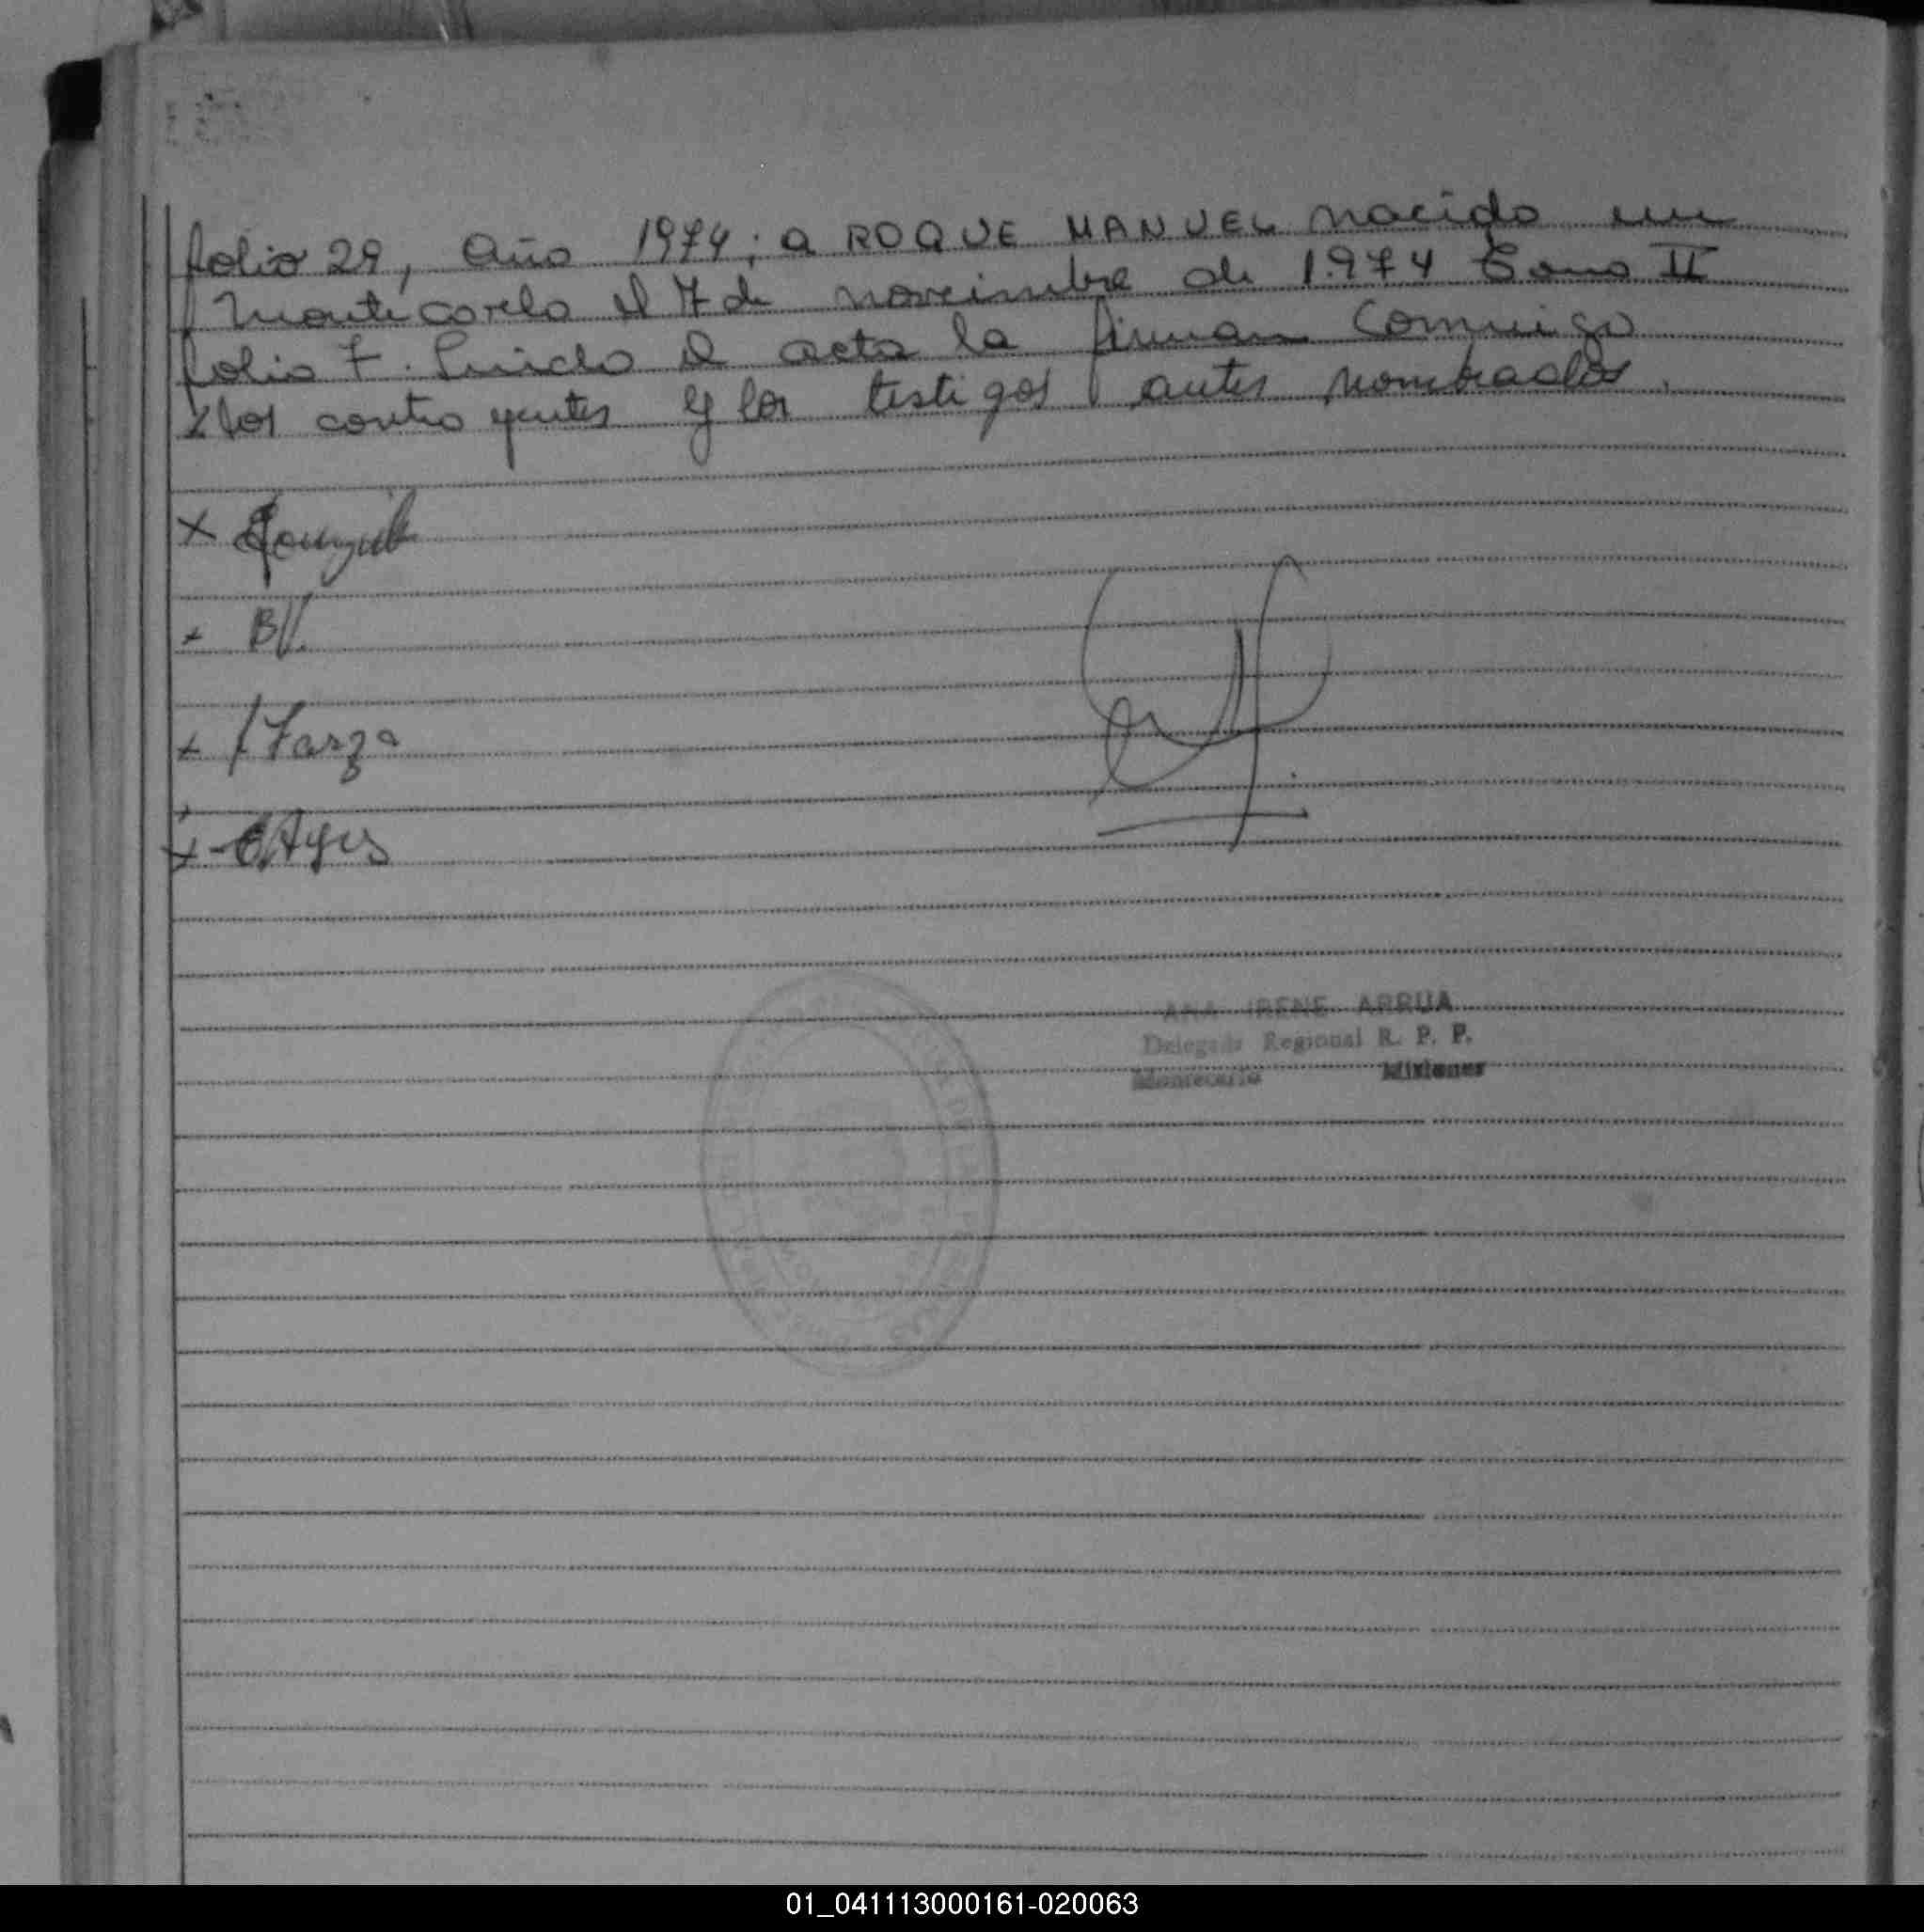 folio 29, Año 1974; a ROQUE MANUEL nacido en
Montecarlo el 7 de noveimbre de 1974 Tomo II
folio 7. Leida el acta la firman Conmigo
los contrayentes y los testigos antes nombrados.
x
x B
x Farza
x
ANA IRENE ARRUA
Delegada Regional R. P. P.
Montecarlo Misiones
01_041113000161-020063